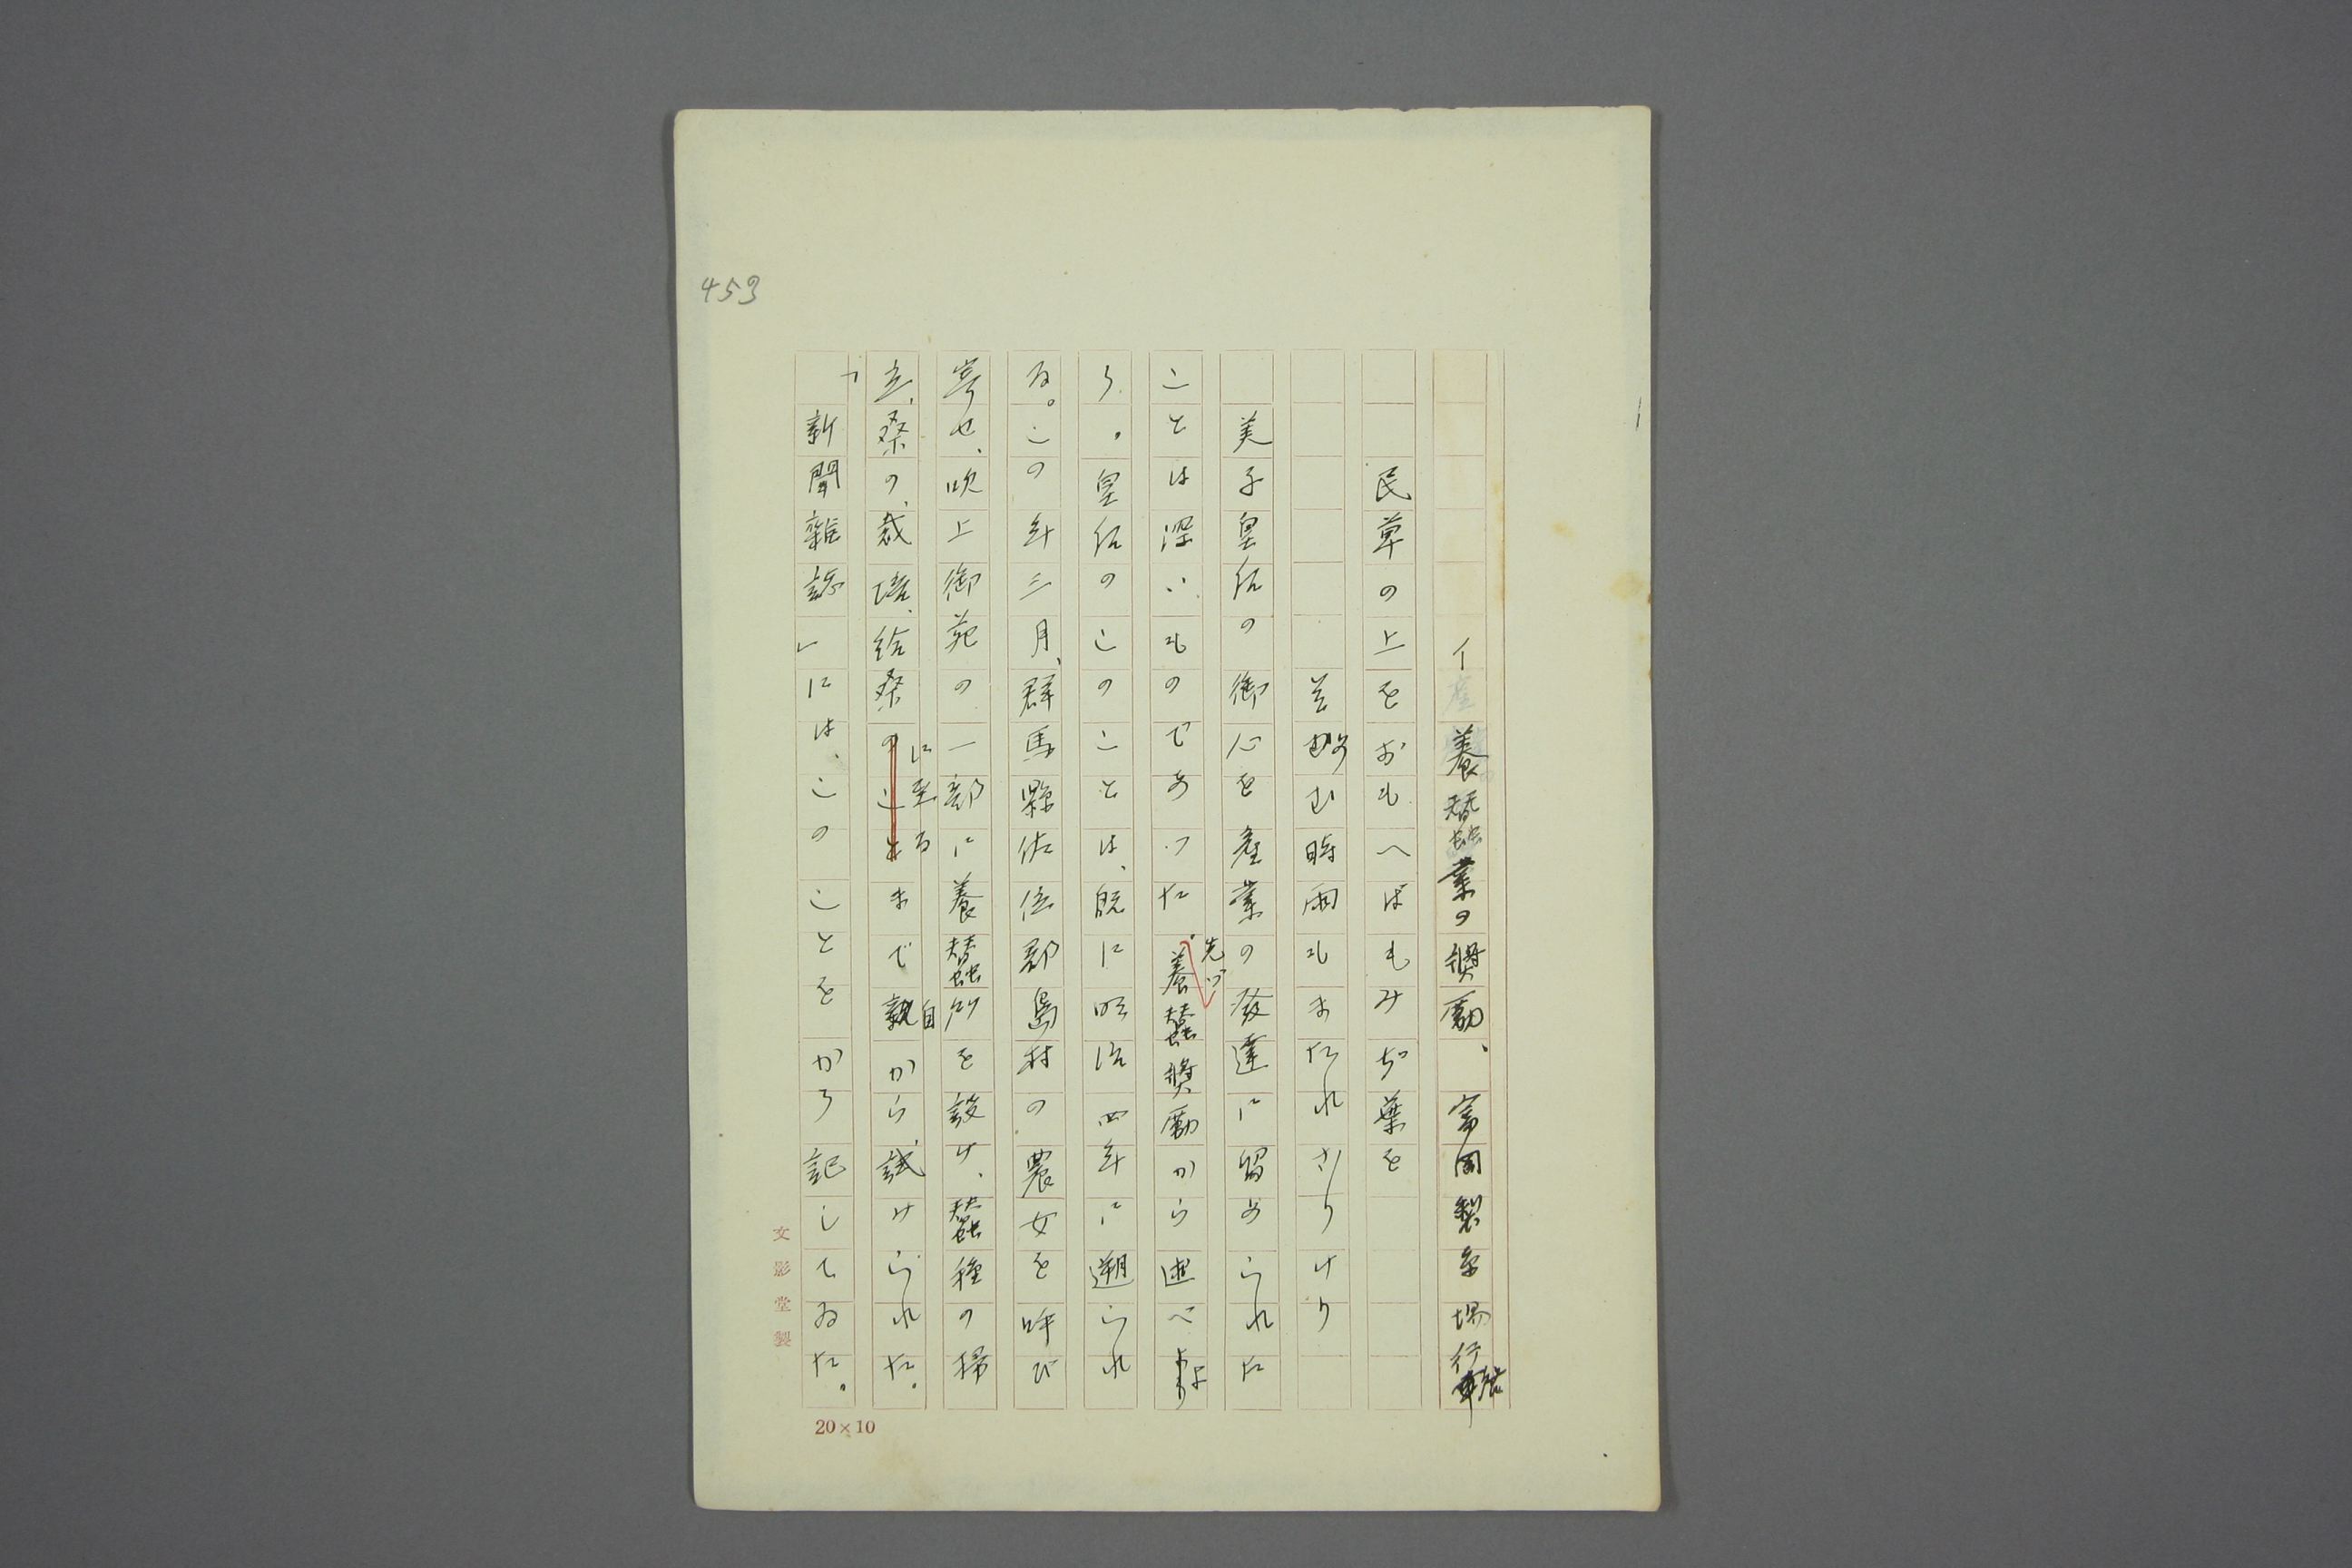 453
イ 養蠶業の奬勵、 富岡製糸場行啓
民草の上をおもへばもみぢ葉を
そむる時雨もまたれざりけり
美子皇后の御心を産業の發達に留められた
ことは深いものであつた。先づ養蠶奬勵から述べよ
う。皇后のこのことは、既に明治四年に遡られ
る。この年三月、群馬縣佐位郡島村の農女を呼び
寄せ、吹上御苑の一部に養蠶所を設け、蠶種の掃
立、桑の、栽培、給桑に至るまで親から、試みられた。
「新聞雜誌」には、このことをかう記してゐた。
文影堂製
20×10